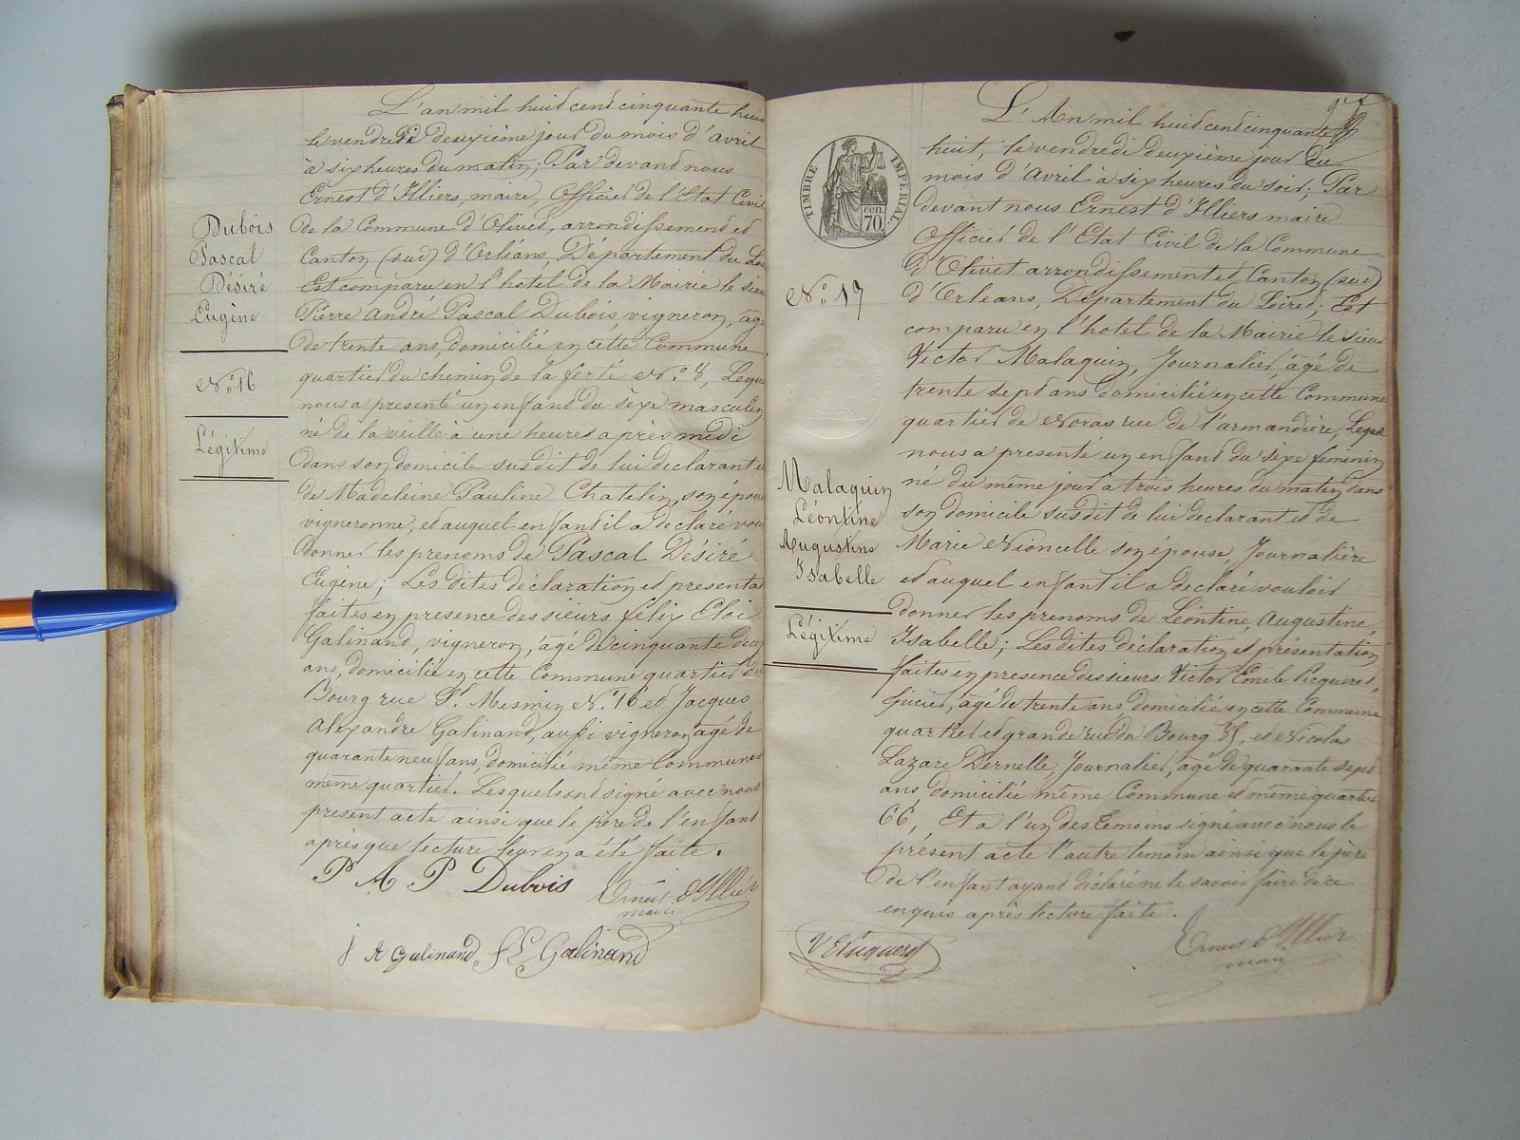 L'an mil huit cent cinquante huit
le vendredi deuxième jour du mois d'avril
à six heures du matin; Par devant nous
Ernest d'Illiers, maire, Officier de l'Etat Civil
de la Commune d'Olivet, arrondissement et
Canton (sud) d'Orléans, Département du Loi
Est comparu en l'hotel de la Mairie le sieu
Pierre André Pascal Dubois vigneron, âgé
de trente ans, domicilié en cette Commune
quartier du chemin de la ferté N.° 8, Lequ
nous a presenté un enfant du sèxe masculin
né de la veille à une heures après midi
dans son domicile susdit de lui declarant e
de Madeleine Pauline Chatelin, son épou
vigneronne, et auquel enfant il a déclaré vou
donner les prenoms de Pascal Désiré
Eugène; Les dites déclaration et presenta
faites en presence des sieurs félix Eloi
Galinand, vigneron, âgé de cinquante deux
ans, domicilié en cette Commune quartier du
Bourg rue St Mesmin N.° 16 et Jacques
Alexandre Galinand, aussi vigneron, agé de
quarante neuf ans, domicilié même Commune
même quartier. Lesquels ont signé avec nous
present acte ainsi que le père de l'enfant
après que lecture leur en a été faite.
P A P Dubois
Ernest d'Illiers
maire
J A Galinand
Galinand
Dubois
Pascal
Désiré
Eugène
N.° 16
Légitime
L'An mil huit cent cinquante
huit, le vendredi deuxième jour du
mois d'Avril à six heures du soir; Par
devant nous Ernest d'Illiers maire
Officier de l'Etat Civil de la Commune
d'Olivet arrondissement et Canton (sud)
d'Orléans, Département du Loiret; Est
comparu en l'hotel de la Mairie le sieur
Victor Malaquin, Journalier, âgé de
trente sept ans domicilié en cette Commune
quartier de Noras rue de l'armandière, Leque
nous a presenté un enfant du sèxe féminin
né du même jour à trois heures du matin dans
son domicile susdit de lui declarant et de
Marie Nioncelle son épouse, Journalière
et auquel enfant il a declaré vouloir
donner les prenoms de Léontine, Augustine,
Isabelle; Les dites déclaration et présentation
faites en presence des sieurs Victor Emile
agé de trente ans domicilié en cette Commune
quartier et grande rue du Bourg et Nicolas
Lazare Dernelle, Journalier, agé de quarante sept
ans domicilié même Commune et même quartier
66, Et a l'un des temoins signé avec nous le
présent acte l'autre temoin ainsi que le père
de l'enfant ayant déclaré ne le savoir faire de ce
enquis après lecture faite.
Ernest d'Illiers
maire
TIMBRE IMPÉRIAL
70 cen.
N.° 17
Malaquin
Léontine
Augustine
Isabelle
Légitime